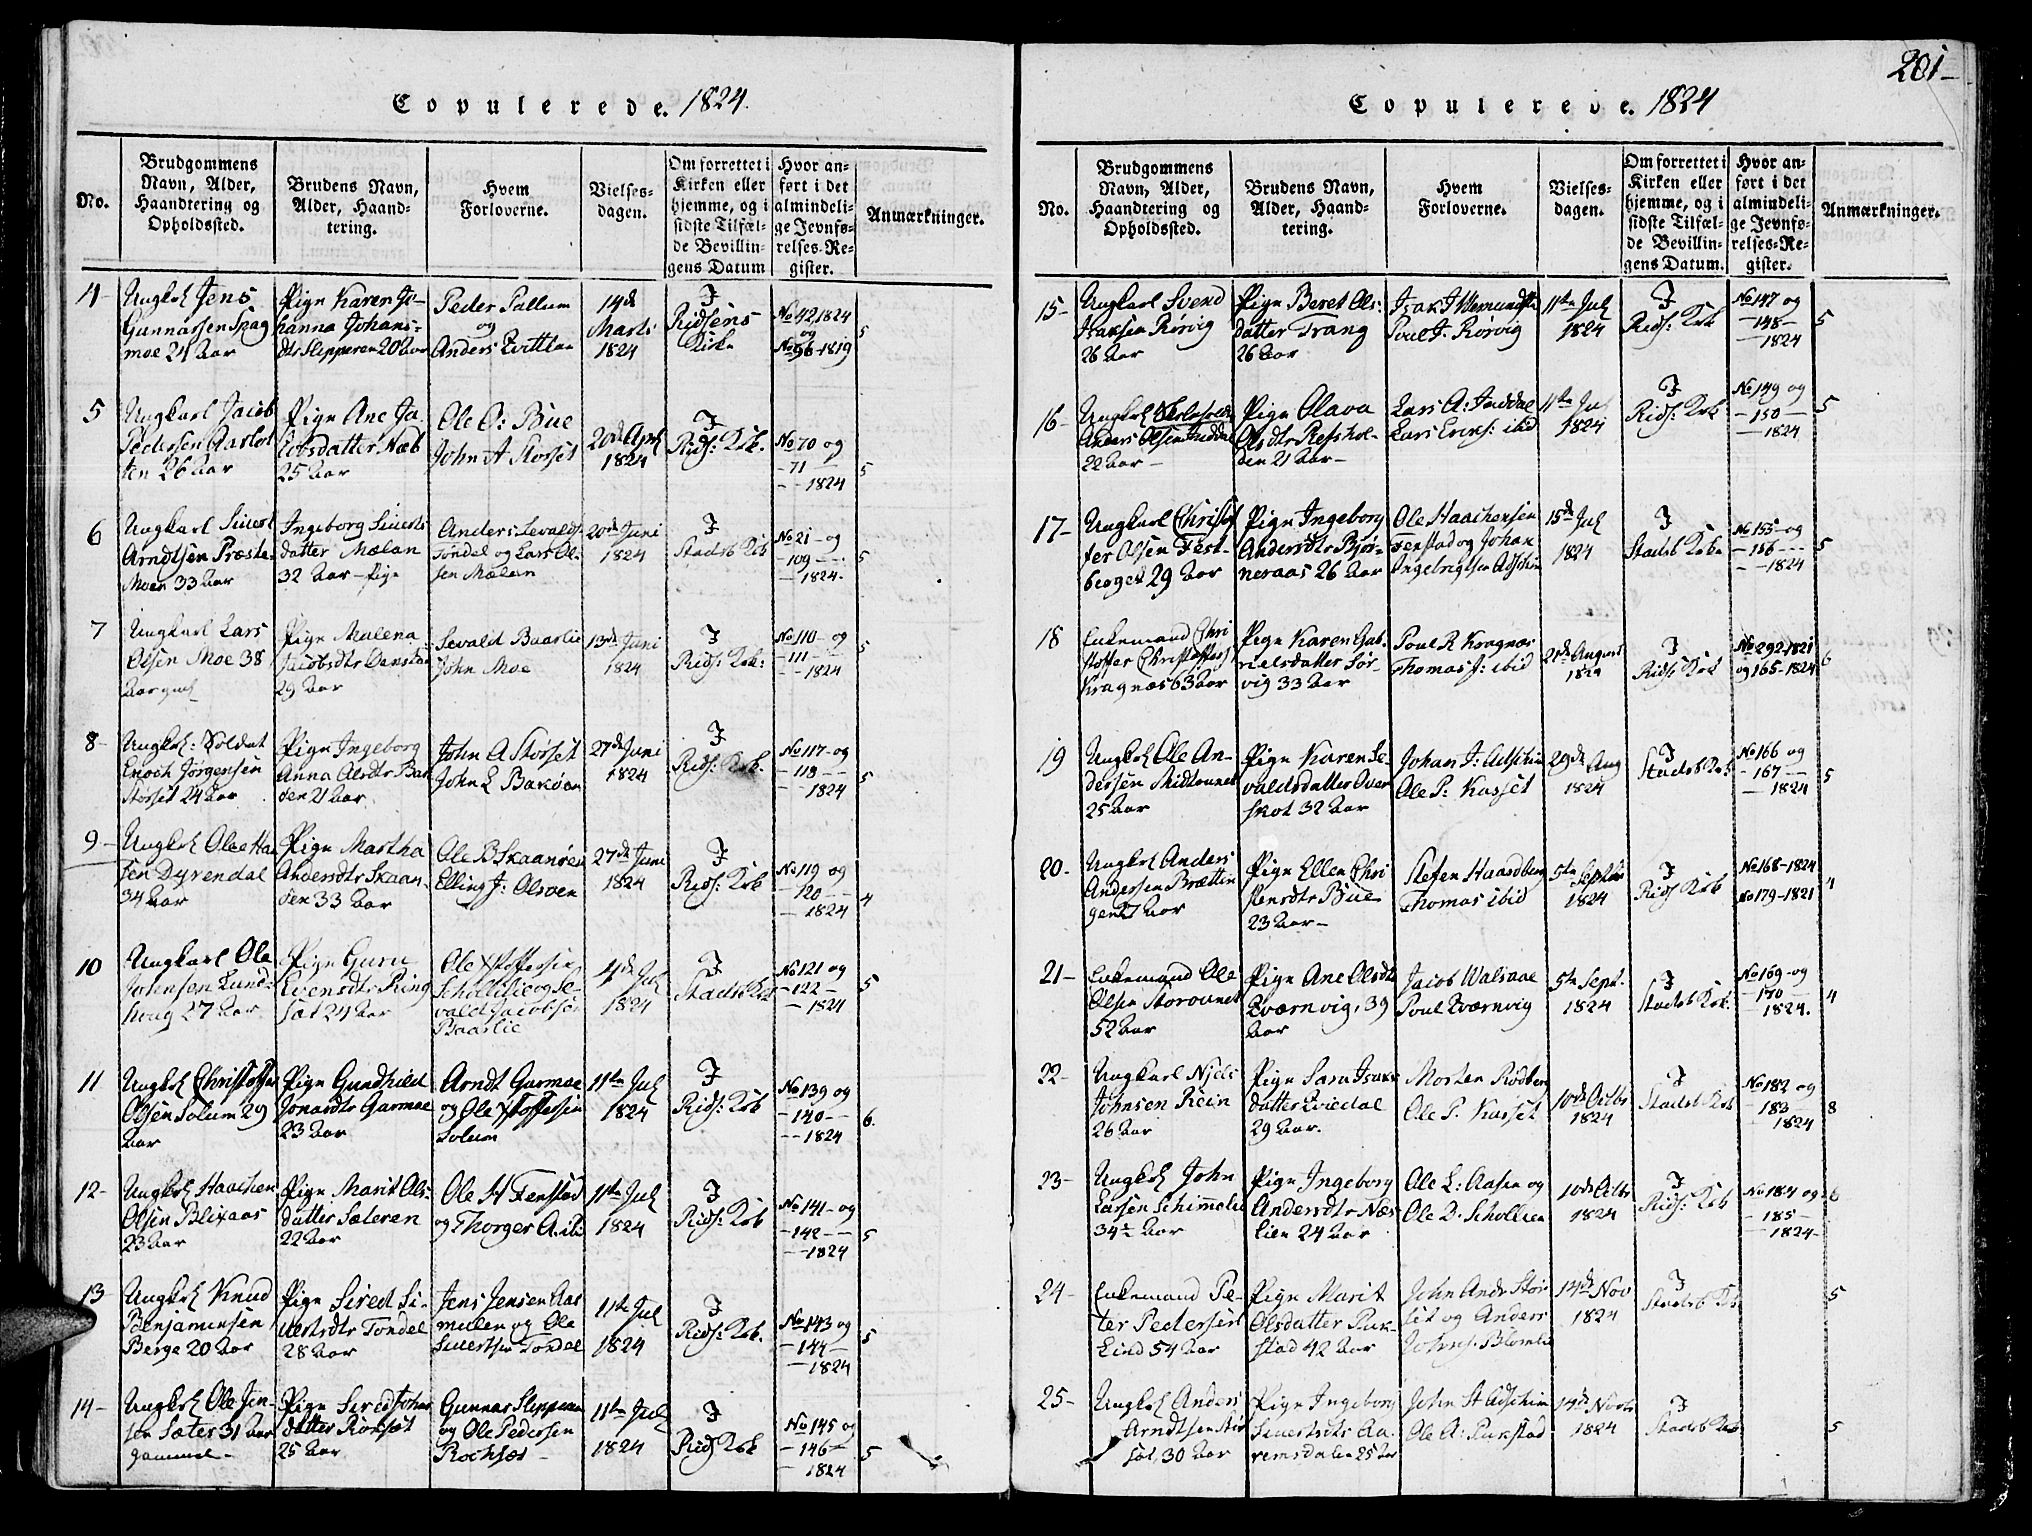 Copulerede. 1824.
No.
Brudgommens
Navn, Alder,
Haandtering og
Opholdssted.
Brudens Navn,
Alder, Haand-
tering.
Hvem
Forloverne.
Vielses-
dagen.
Om forrettet i
Kirken eller
hjemme, og i
sidste Tilfæl-
de Bevillin-
gens Datum
Hvor an-
ført i det
almindeli-
ge Jevnfø-
relses-Re-
gister.
Anmærkninger.
4-
Ungk Jens
Gunnarsen Spag
moe 24 Aar
Pige Karen Jo-
hanna Johans-
dtr Slipperen 20 Aar
Peder Sallum
og
Anders Evittian
14de
Marts
1824
I
Ridsens
Kirke
No 42 1824
og
No 96-1819
5
5
Ungkarl Jacob
Pedersen Aarlot
ten 26 Aar
Pige Ane Ja
cobsdatter Næb
25 Aar
Ole O: Bue
John A Storset
20de Apr
1824
I
Rids: Krk.
No 70 og
-71-
--1824
5
6
Ungkarl Siuert
Arndtsen Præste
Moen 33 Aar
Ingeborg Siuerts
datter Mælan
32 Aar-Pige
Anders Sevalds
Tondel og Lars Ol-
sen Mælan
20de Juni
1824
I
Stadsb Krk
No 21- og
-109-
--1824.
5
7
Ungkarl Lars
Olsen Moe 38
Aar gml
Pige Malena
Jacobsdtr Denstad
29 Aar
Sevald Baarlie
John Moe
13de Juni
1824
I
Rids: Krk:
No 110- og
-111-
--1824
5
8-
Ungk: Soldat
Enoch Jørgensen
Storset 24 Aar
Pige Ingeborg
Anna Olsdtr Bar
den 21 Aar
John A Storset
John L Barøen
27de Juni
1824
I
Rids: Krk.
No 117- og
-118-
--1824
5
9-
Ungk Ole Han
sen Dyrendal
34 Aar
Pige Martha
Andersdtr Skaan-
den 33 Aar
Ole B Skaanøen
Elling J: Olsoen
27de Juni
1824
I
Rids: Krk
No 119 og
-120-
--1824
4
10
Ungkarl Ole
Johnsen Lund-
houg 27 Aar
Pige Guru
Evensdtr Ring
sæt 24 Aar
Ole Xstoffersen
Schallie og Se-
vald Jacobsen
Baarlie
4de Jul
1824
I
Stadsb Krk
No 121 og
-122-
--1824
5
11
Ungk Christoffer
Olsen Solum 29
Aar
Pige Gundhild
Jonasdtr Garmae
23 Aar
Arndt Garmae
og Ole Xstoffersen
Solum
11te Jul
1824
I
Rids: Krk
No 139 og
-140-
--1824
6.
12-
Ungk Haachen
Olsen Blixaas
23 Aar
Pige Marit Ols-
datter Sæteren
22 Aar
Ole H Fenstad
og Thorger A. ibi
11te Jul
1824
I
Rids: Krk
No 141- og
-142-
--1824
5
13
Ungk Knud
Benjaminsen
Berge 20 Aar
Pige Sired Si-
uertsdtr Tondel
28 Aar
Jens Jensen Aas
mulen og Ole
Siuertsen Tondel
11te Jul
1824
I
Rids: Krk.
No 143 og
-144-
--1824
5
14-
Ungk Ole Jen-
sen Sæter 31 Aar
gammel-
Pige Sired Johns
datter Rønsæt
25 Aar
Gunnar Slipperen
og Ole Pedersen
Rochsæt-
11te Jul
1824
I
Rids Krk
No 145 og
-146-
1824
5
201-
Copulerede. 1824
No.
Brudgommens
Navn, Alder,
Haandtering og
Opholdssted.
Brudens Navn,
Alder, Haand-
tering.
Hvem
Forloverne.
Vielses-
dagen.
Om forrettet i
Kirken eller
hjemme, og i
sidste Tilfæl-
de Bevillin-
gens Datum.
Hvor an-
ført i det
almindeli-
ge Jevnfø-
relses-Re-
gister.
Anmærkninger.
15-
Ungkarl Svend
Isaksen Rørvig
26 Aar
Pige Beret Ols-
datter Trang
26 Aar
Isak
Poul J. Rørvig
11te Jul
1824
I
Rids: Krk
No 147 og
-148-
-1824
5
16-
Ungk
Anders Olsen Inddal
22 Aar-
Pige Olava
Olsdtr Refshol-
den 21 Aar-
Lars A: Inddal
Lars Eriks: ibid
11te Jul
1824
I
Rids: Krk
No 149 og
-150-
-1824
5
17-
Ungkarl Christof
fer Olsen Fest-
berget 29 Aar
Pige Ingeborg
Andersdtr Bjør-
neraas 26 Aar
Ole Haachensen
Fenstad og Johan
Ingebrigtsen Adschim
15de Jul
1824
I
Stadsb Krk
No 155- og
-156-
--1824
5
18
Enkemand Chri
stoffer Christoffers
Kragnæs 63 Aar
Pige Karen Gab-
rielsdatter Sør-
vig 33 Aar
Poul R Kragnæs
Thomas J: ibid
21de August
1824
I
Rids Krk
No 292-1821
og 165-1824
6
19
Ungk Ole An-
dersen Midtvanet
25 Aar
Pige Karen Se-
valdsdatter Over
skot 32 Aar
Johan J: Adschim
Ole P: Kusset
29de Aug
1824
I
Stadsb Krk
No 166 og
-167-
-1824
5
20-
Ungk Anders
Andersen Brættin
gen 27 Aar
Pige Ellen Chri
stensdtr Bue
23 Aar-
Stefen Haardberg
Thomas ibid
5te Septbr
1824
I
Rids Krk
No 168-1824
No 179-1821
4
21-
Enkemand Ole
Olsen Storvanet
52 Aar
Pige Ane Olsdtr
Qværnvig, 39
Aar
Jacob Walsaae
Poul Qværnvig
5te Sept.
1824
I
Stadsb Krk.
No 169- og
-170-
-1824.
4
22-
Ungkarl Niels
Johnsen Rein
26 Aar
Pige Sara Isaks
datter Eviedal
29 Aar.
Morten Rodberg
Ole P. Kusset
10de Octbr
1824
I
Stadsb Krk
No 182 og
-183
1824
8
23-
Ungk John
Larsen Schimmelie
34½ Aar
Pige Ingeborg
Andersdtr Næs
lien 24 Aar
Ole L: Aasen og
Ole D. Schollien
10de Octbr
1824
I
Rids: Krk
No 184 og
-185-
-1824-
6
24-
Enkemand Pe-
ter Pedersen
Lind 54 Aar
Pige Marit
Olsdatter Ruk-
stad 42 Aar
John Andr Stor
set og Anders
Johns. Blomlie
14de Nov
1824
I
Stadsb Krk
5
25-
Ungk Anders
Arndtsen Stor
set, 30 Aar
Pige Ingeborg
Siuertsdtr Aa-
remsdalen 25 Aar
John St Adschim
Ole A: Rukstad
14de Novbr
1824
I
Stadsb Krk
5